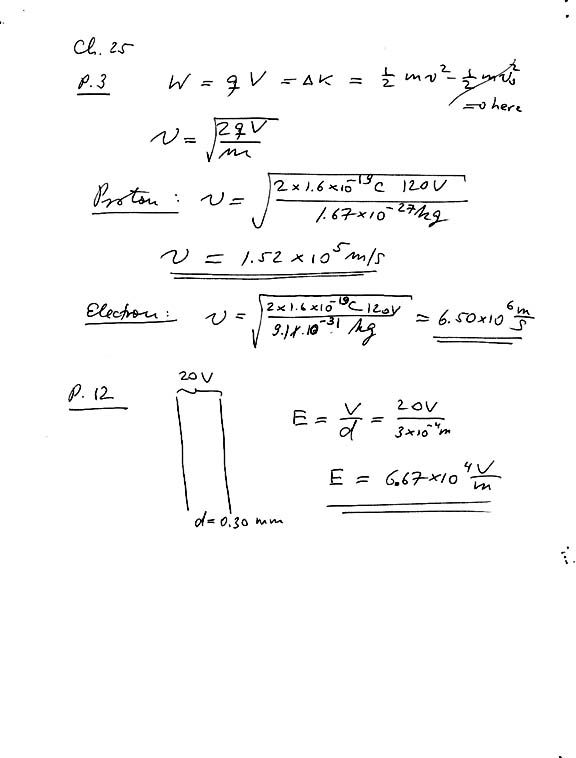 Ch. 25
P.3 W = qV = ΔK = 1/2 mv² - 1/2 mv₀²
=0 here
v = √(2qV/m)
Proton: v = √(2×1.6×10⁻¹⁹C 120V / 1.67×10⁻²⁷kg)
v = 1.52×10⁵ m/s
Electron: v = √(2×1.6×10⁻¹⁹C 120V / 9.11·10⁻³¹ kg) = 6.50×10⁶ m/s
P. 12 20V
E = V/d = 20V / 3×10⁻⁴m
E = 6.67×10⁴ V/m
d=0.30 mm